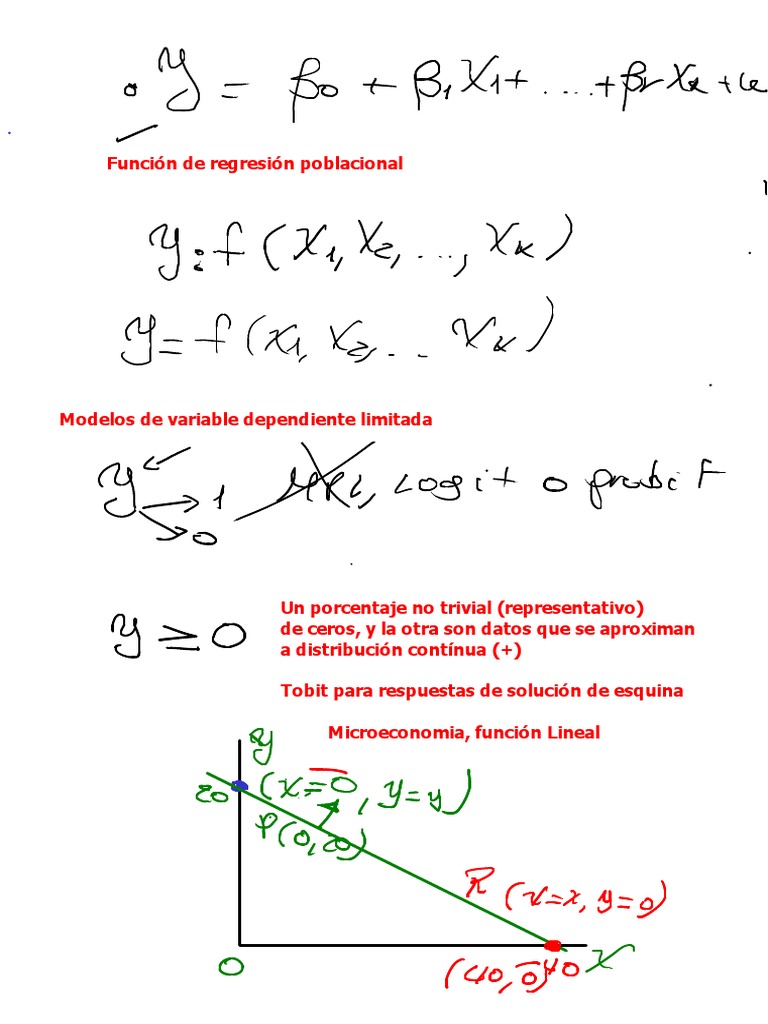 • Y = β0 + β1X1 + .... + βkXk + u
Función de regresión poblacional
Y: f(X1, X2, ..., Xk)
Y = f(X1, X2, ... Xk)
Modelos de variable dependiente limitada
Y 1 MRL, Logit o probit
0
Y ≥ 0
Un porcentaje no trivial (representativo)
de ceros, y la otra son datos que se aproximan
a distribución contínua (+)
Tobit para respuestas de solución de esquina
Microeconomia, función Lineal
Y
20 (X=0, Y=y)
P(0,20)
R (X=x, y=0)
0 (40,0) 40 X